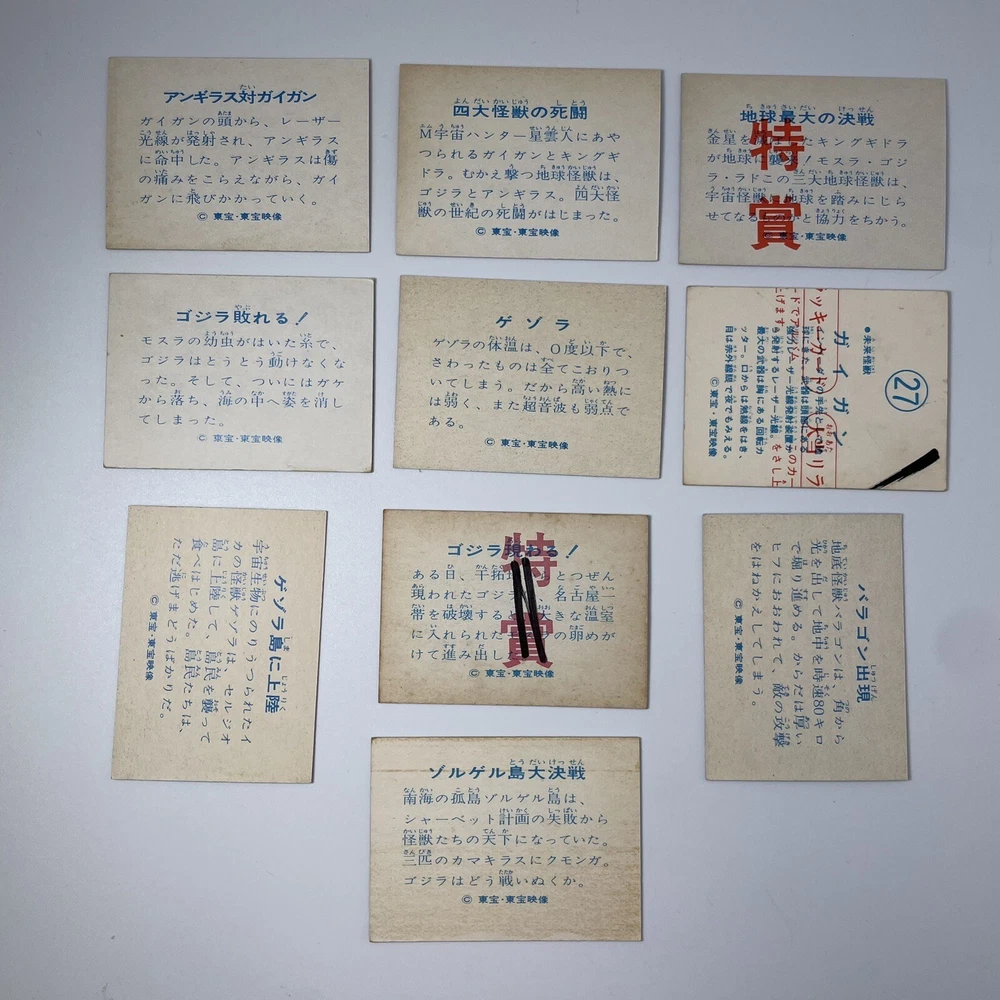 アンギラス対ガイガン
ガイガンの頭から、レーザー
光線が発射され、アンギラス
に命中した。アンギラスは傷
の痛みをこらえながら、ガイ
ガンに飛びかかっていく。
© 東宝・東宝映像
四大怪獣の死闘
M宇宙ハンター星雲人にあや
つられるガイガンとキングギ
ドラ。むかえ撃つ地球怪獣は、
ゴジラとアンギラス。四大怪
獣の世紀の死闘がはじまった。
© 東宝・東宝映像
地球最大の決戦
金星を たキングギドラ
が地球に襲来!モスラ・ゴジ
ラ・ラドンの三大地球怪獣は、
宇宙怪獣に地球を踏みにじら
せてなるものかと協力をちかう。
© 東宝・東宝映像
特賞
ゴジラ敗れる!
モスラの幼虫がはいた糸で、
ゴジラはとうとう動けなくな
った。そして、ついにはガケ
から落ち、海の中へ姿を消し
てしまった。
© 東宝・東宝映像
ゲゾラ
ゲゾラの体温は、0度以下で、
さわったものは全てこおりつ
いてしまう。だから高い熱に
は弱く、また超音波も弱点で
ある。
© 東宝・東宝映像
27
ガイガン
●未来怪獣
の手先として地
球にきた。武器は頭部にある
ザー光線発射装置か
ら発射するレーザー光線。
最大の武器は腹にある回転カ
ッター。口からは熱線をはき、
目は赤外線眼で夜でもみえる。
© 東宝・東宝映像
ラッキーカード
大当り
このカー
ドでアルバム
をさし上
げます
ゲゾラ島に上陸
宇宙生物にのりうつられたイ
カの怪獣ゲゾラは、セルジオ
島に上陸して、島民を襲って
食べはじめた。島民たちは、
ただ逃げまどうばかりだ。
© 東宝・東宝映像
ゴジラ現わる!
ある日、干拓地 とつぜん
現われたゴジラ 、名古屋一
帯を破壊すると 大きな温室
に入れられた の卵めが
けて進み出した
© 東宝・東宝映像
特賞
バラゴン出現
地底怪獣バラゴンは、角から
光を出して地中を時速80キロ
で掘り進める。からだは厚い
ヒフにおおわれて、敵の攻撃
をはねかえしてしまう。
© 東宝・東宝映像
ゾルゲル島大決戦
南海の孤島ゾルゲル島は、
シャーベット計画の失敗から
怪獣たちの天下になっていた。
三匹のカマキラスにクモンガ。
ゴジラはどう戦いぬくか。
© 東宝・東宝映像